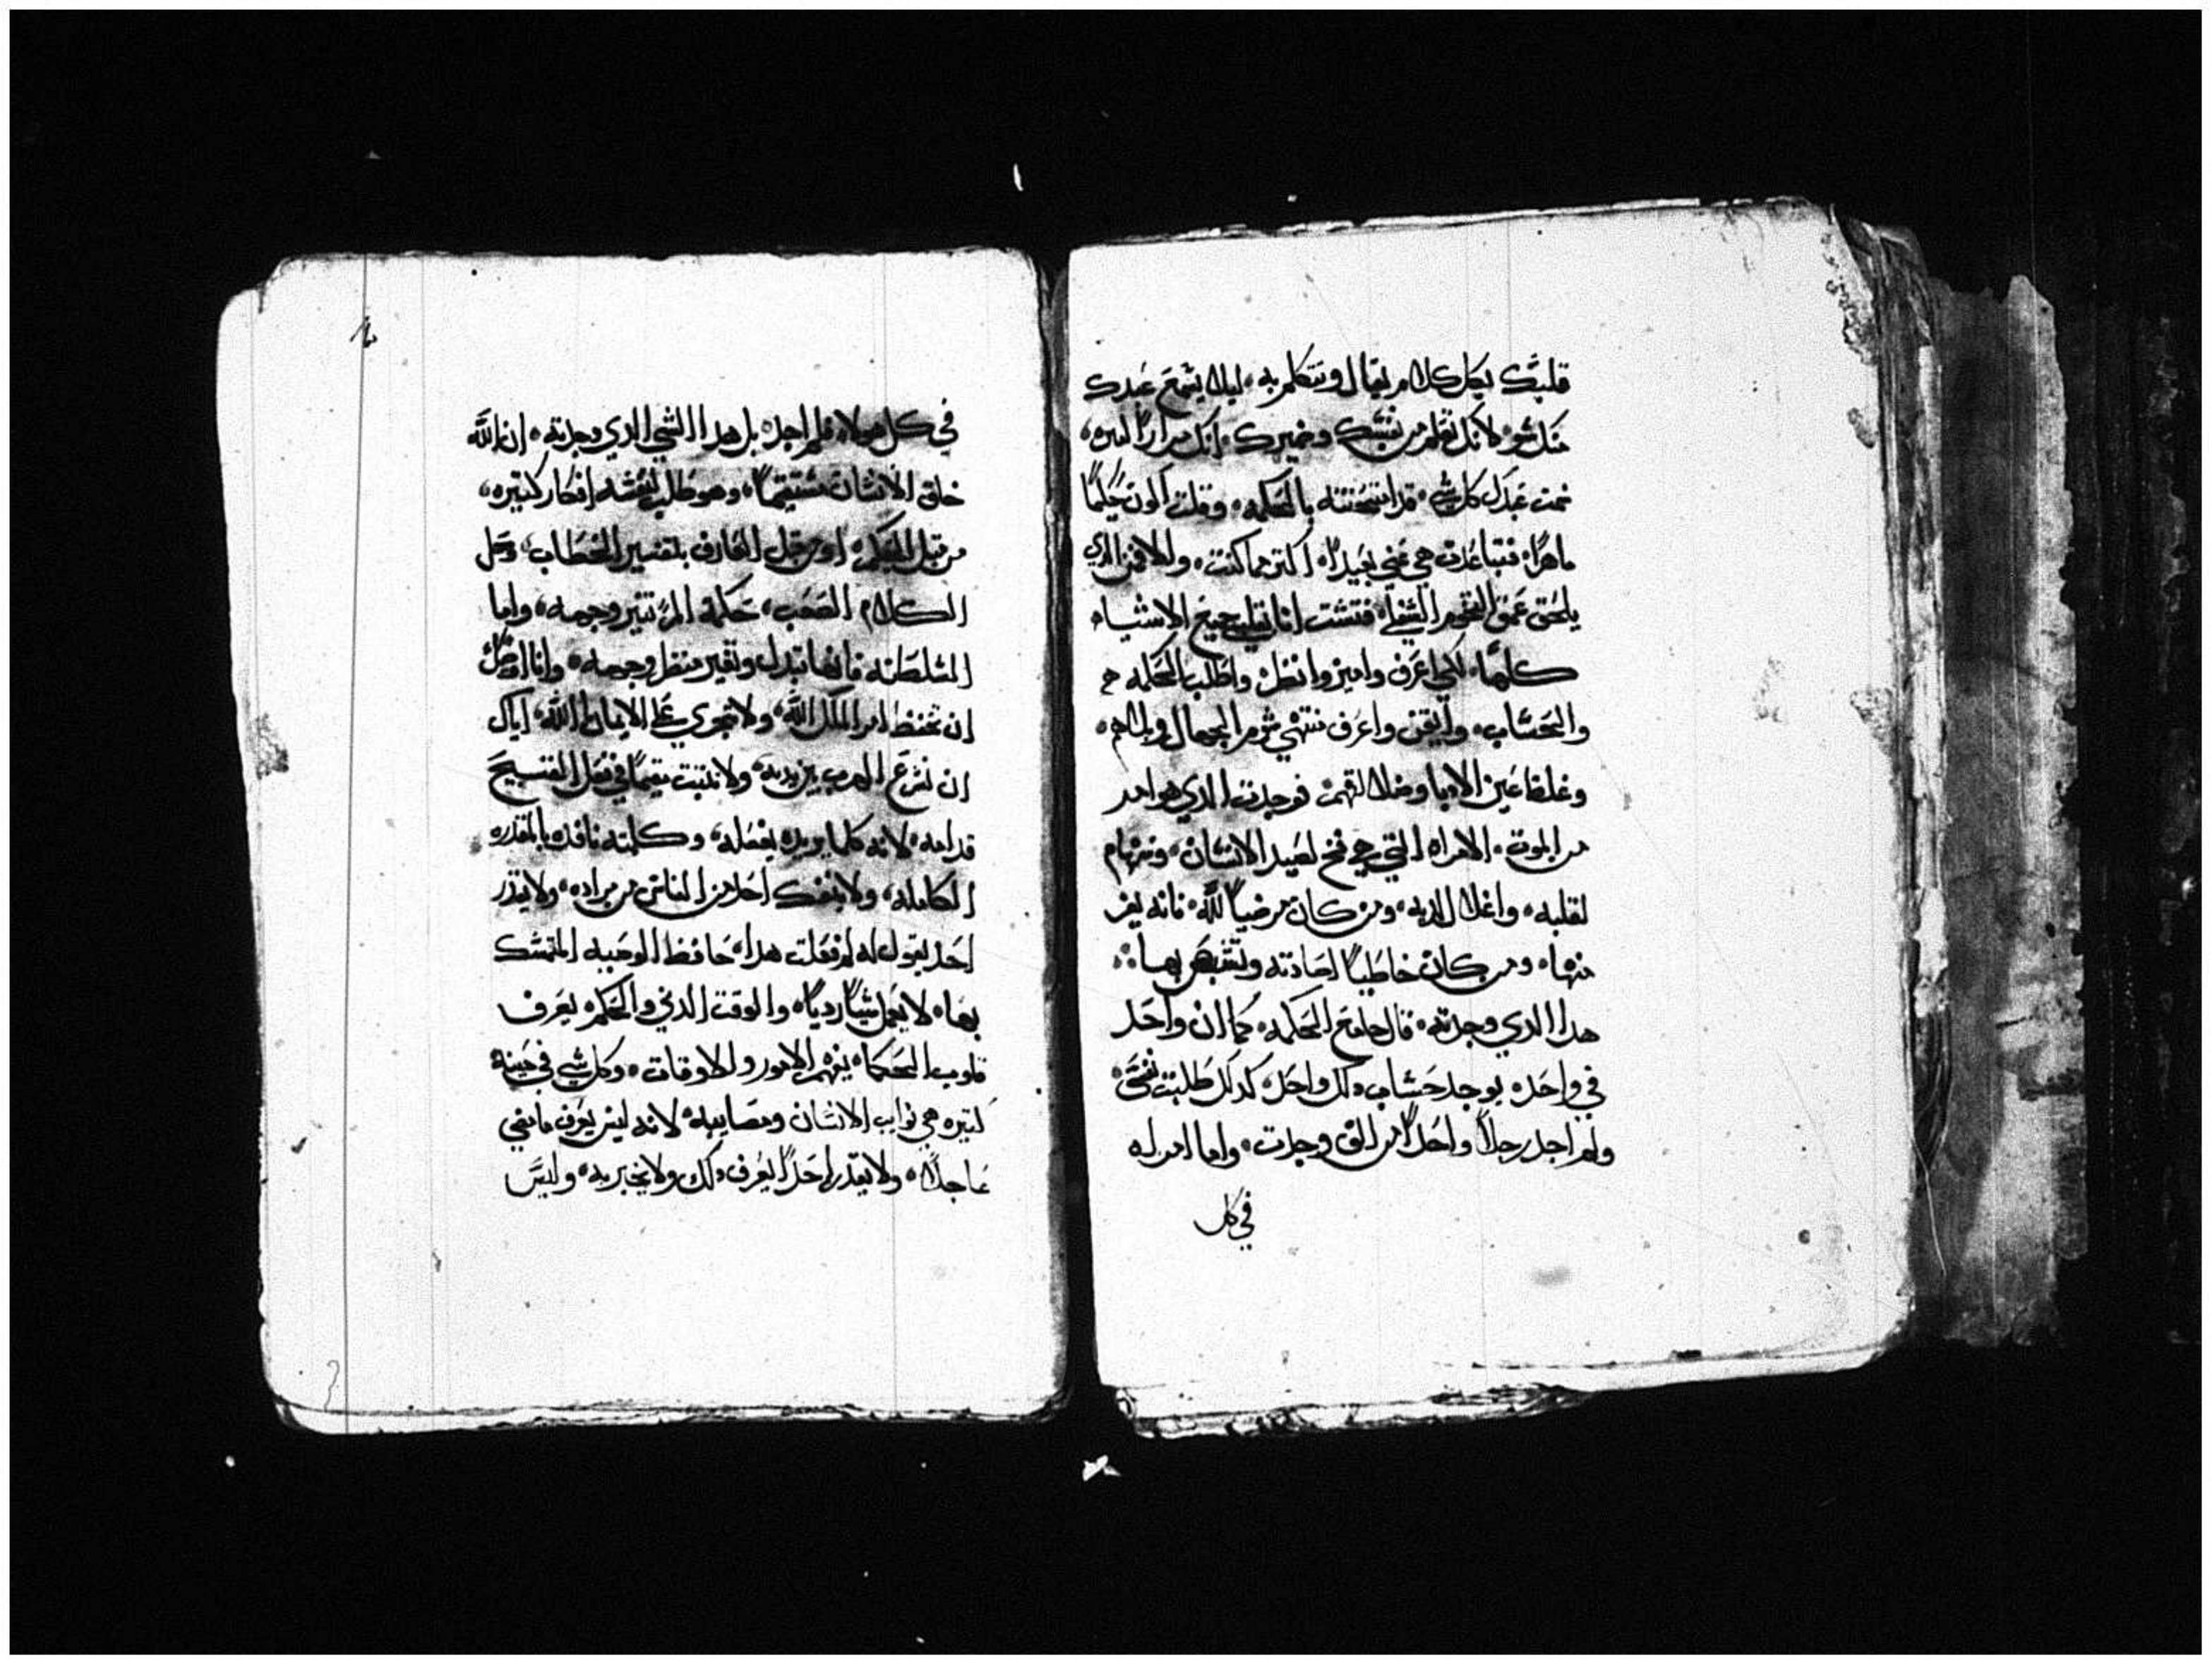 قلبك بكل كلام يقال وتتكلم به، ليلا يسمع عبدك
لانك تعلم من نفسك وضميرك انك مرارا كتيره،
كل شي، قد امتحنته بالحكمه، وقلت اكون حكيما
ماهرا، فتباعدت هي عني بعيدا، اكتر مما كنت، والان من الدي
يلحق عمق التخوم السفلى، فتشت انا بقلبي جميع الاشياء
كلها، لكي اعرف واميز وانظر، واطلب الحكمه
والحساب، وايقن واعرف شوم الجهال
فوجدت الدي هو امر
من الموت، الامراه التي هي فخ لصيد الانسان،
لقلبه، واغلال اديه، ومن كان مرضيا لله، فانه يفر
منها، ومن كان خاطيا بها
هدا الدي وجدته، قال جامع الحكمه، كما ان واحد
في واحده يوجد حساب دلك واحد، كدلك طلبت نفسي،
ولم اجد رجلا واحدا من الف وجدت، واما امراه
في كل
في كل هولا فلم اجد، بل هدا الشي الدي وجدته، ان الله
خلق الانسان مستقيما، وهو طلب لنفسه افكار كتيره،
من قبل الحكمه او من قبل العارف بتفسير الخطاب، وحل
الكلام الصعب، حكمة المر تنير وجهه، واما
السلطنه فانها تبدل وتغير منظر وجهه، وانا
ان تحفظ امر الملك الله، ولا على الايمان الله، اياك
ان تسرع الهرب بين يديه، ولا تتبت مقيما في فعل القبيح
قدامه، لانه كلما يريده يفعله، وكلمته نافده بالمقدره
الكامله، ولا احدا من الناس من مراده، ولا يقدر
احد يقول له لم فعلت هدا، حافظ الوصيه المتمسك
بها، لا يعمل شيا رديا، والوقت الدني والحكم يعرف
قلوب الحكما، يفهم الامور والاوقات، وكل شي في حينه
كتيره هي نوايب الانسان ومصايبه، لانه ليس يعرف ماضي
عاجلا، ولا يقدر احدا يعرف دلك ولا يخبر به، وليس